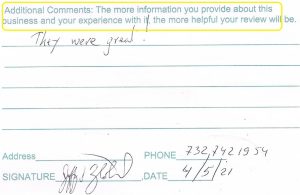 Additional Comments: The more information you provide about this
business and your experience with it, the more helpful your review will be.
They were great!
Address PHONE 732,742 1954
SIGNATURE ,DATE 4/5/21